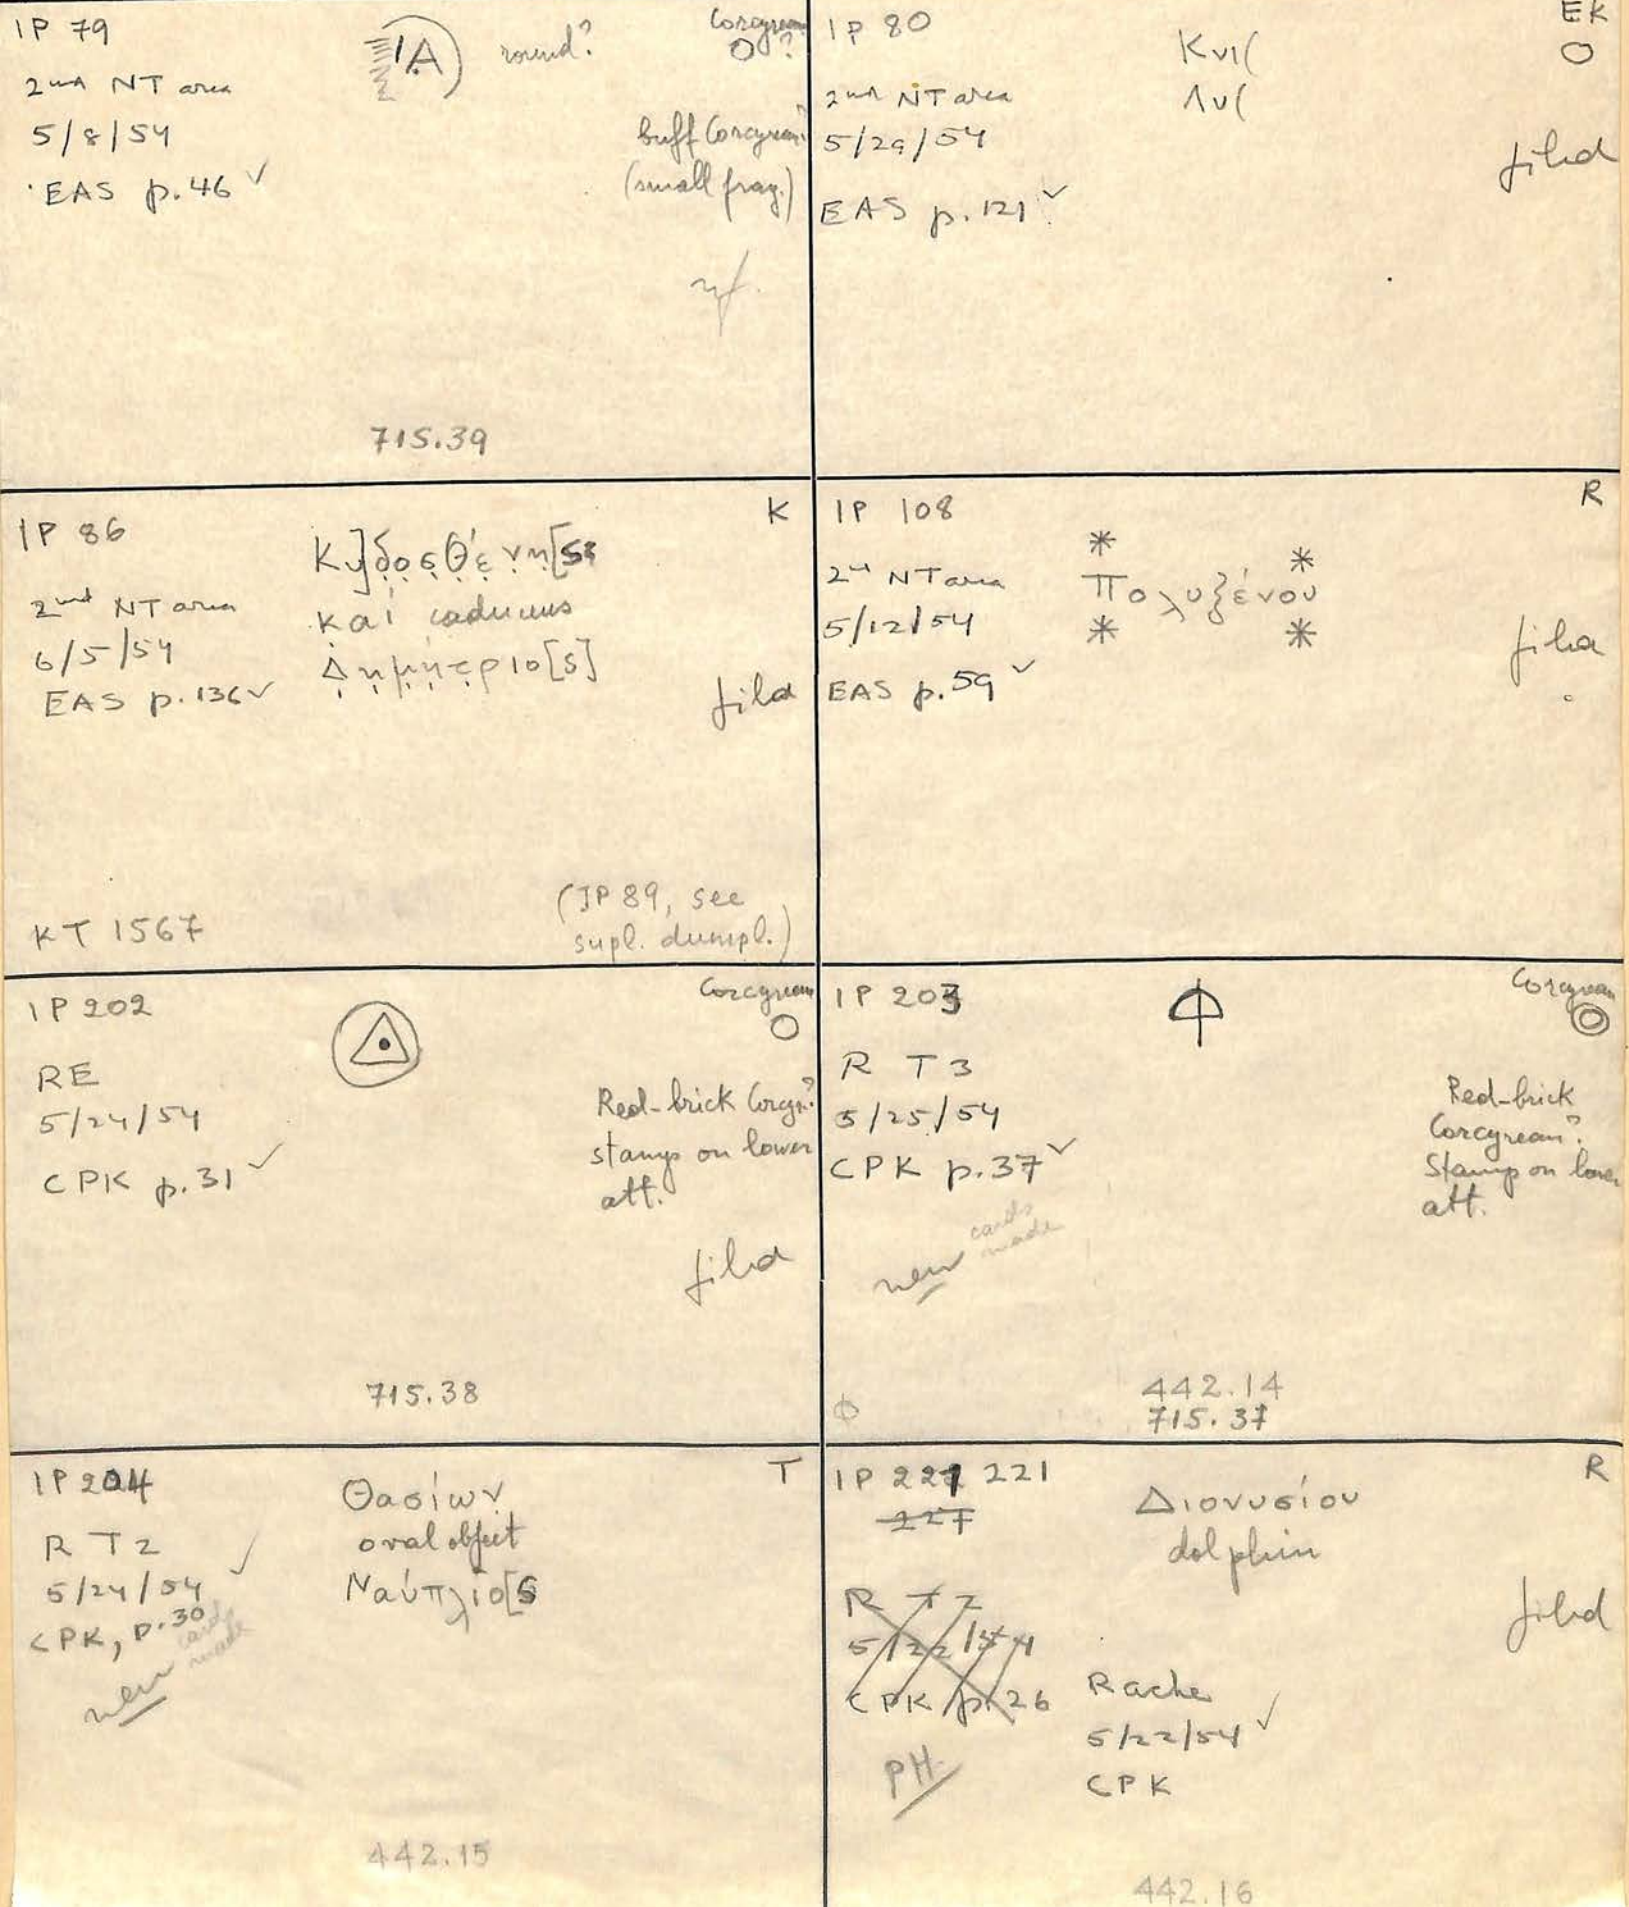 IP 79
2nd NT area
5/8/54
EAS p. 46 ✓
ΙΑ
round?
Corcyrean?
buff Corcyrean?
(small frag.)
715.39
IP 80
2nd NT area
5/29/54
EAS p. 121 ✓
Κνι(
Λυ(
EK
filed
IP 86
2nd NT area
6/5/54
EAS p. 136 ✓
Κυ]δ̣ο̣σ̣θ̣έ̣ν̣η̣[ς
καὶ caduceus
Δ̣η̣μ̣ή̣τ̣ριο[ς]
K
filed
KT 1567
(IP 89, see
supl. dumpl.)
IP 108
2nd NT area
5/12/54
EAS p. 59 ✓
* *
Πολυξένου
* *
R
filed
IP 202
RE
5/24/54
CPK p. 31 ✓
Corcyrean
Red-brick Corcyr.?
stamp on lower
att.
filed
715.38
IP 203
R T3
5/25/54
CPK p. 37 ✓
new cards
made
Corcyrean
Red-brick
Corcyrean?
Stamp on lower
att.
442.14
715.37
IP 204
R T2
5/24/54 ✓
CPK, p. 30
new cards
made
Θασίων
oval object
Ναύπλιο[ς
T
442.15
IP 221 221
227
R T2
5/22/54
CPK p. 26
PH.
Διονυσίου
dolphin
Rache
5/22/54 ✓
CPK
R
filed
442.16